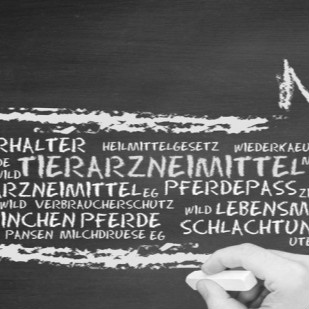 RHALTER HEILMITTELGESETZ WIEDERKAEU
DE TIERARZNEIMITTEL
WILD
ARZNEIMITTEL EG PFERDEPASS
WILD VERBRAUCHERSCHUTZ WILD LEBENSM
INCHEN PFERDE SCHLACHTUN
PANSEN MILCHDRUESE EG UTE